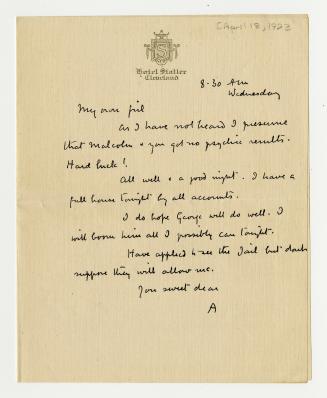 [April 18, 1923
Hotel Statler
Cleveland
8-30 AM
Wednesday
My own girl
As I have not heard I presume
that Malcolm & you got no psychic results.
Hard luck!
All well & a good night. I have a
full house tonight by all accounts.
I do hope George will do well. I
will boom him all I possibly can tonight.
Have applied to see the Jail but don't
suppose they will allow me.
Your sweet dear
A